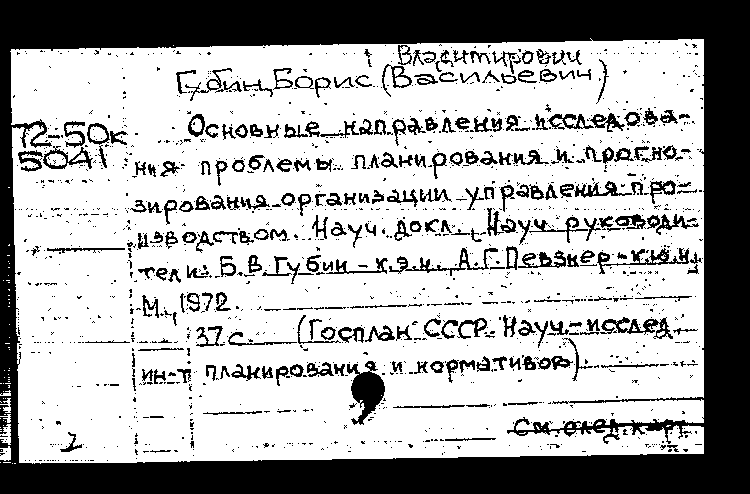 Владимирович
Губин, Борис (Васильевич)
72-50к
5041
Основные направления исследова-
ния проблемы планирования и прогно-
зирования организации управления про-
изводством. Науч. докл. Науч. руководи-
тели: Б.В. Губин - к.э.н., А.Г. Певзнер - к.ю.н.
М., 1972.
37 с. (Госплан СССР. Науч.-исслед.
ин-т планирования и нормативов).
См. след. карт.
2